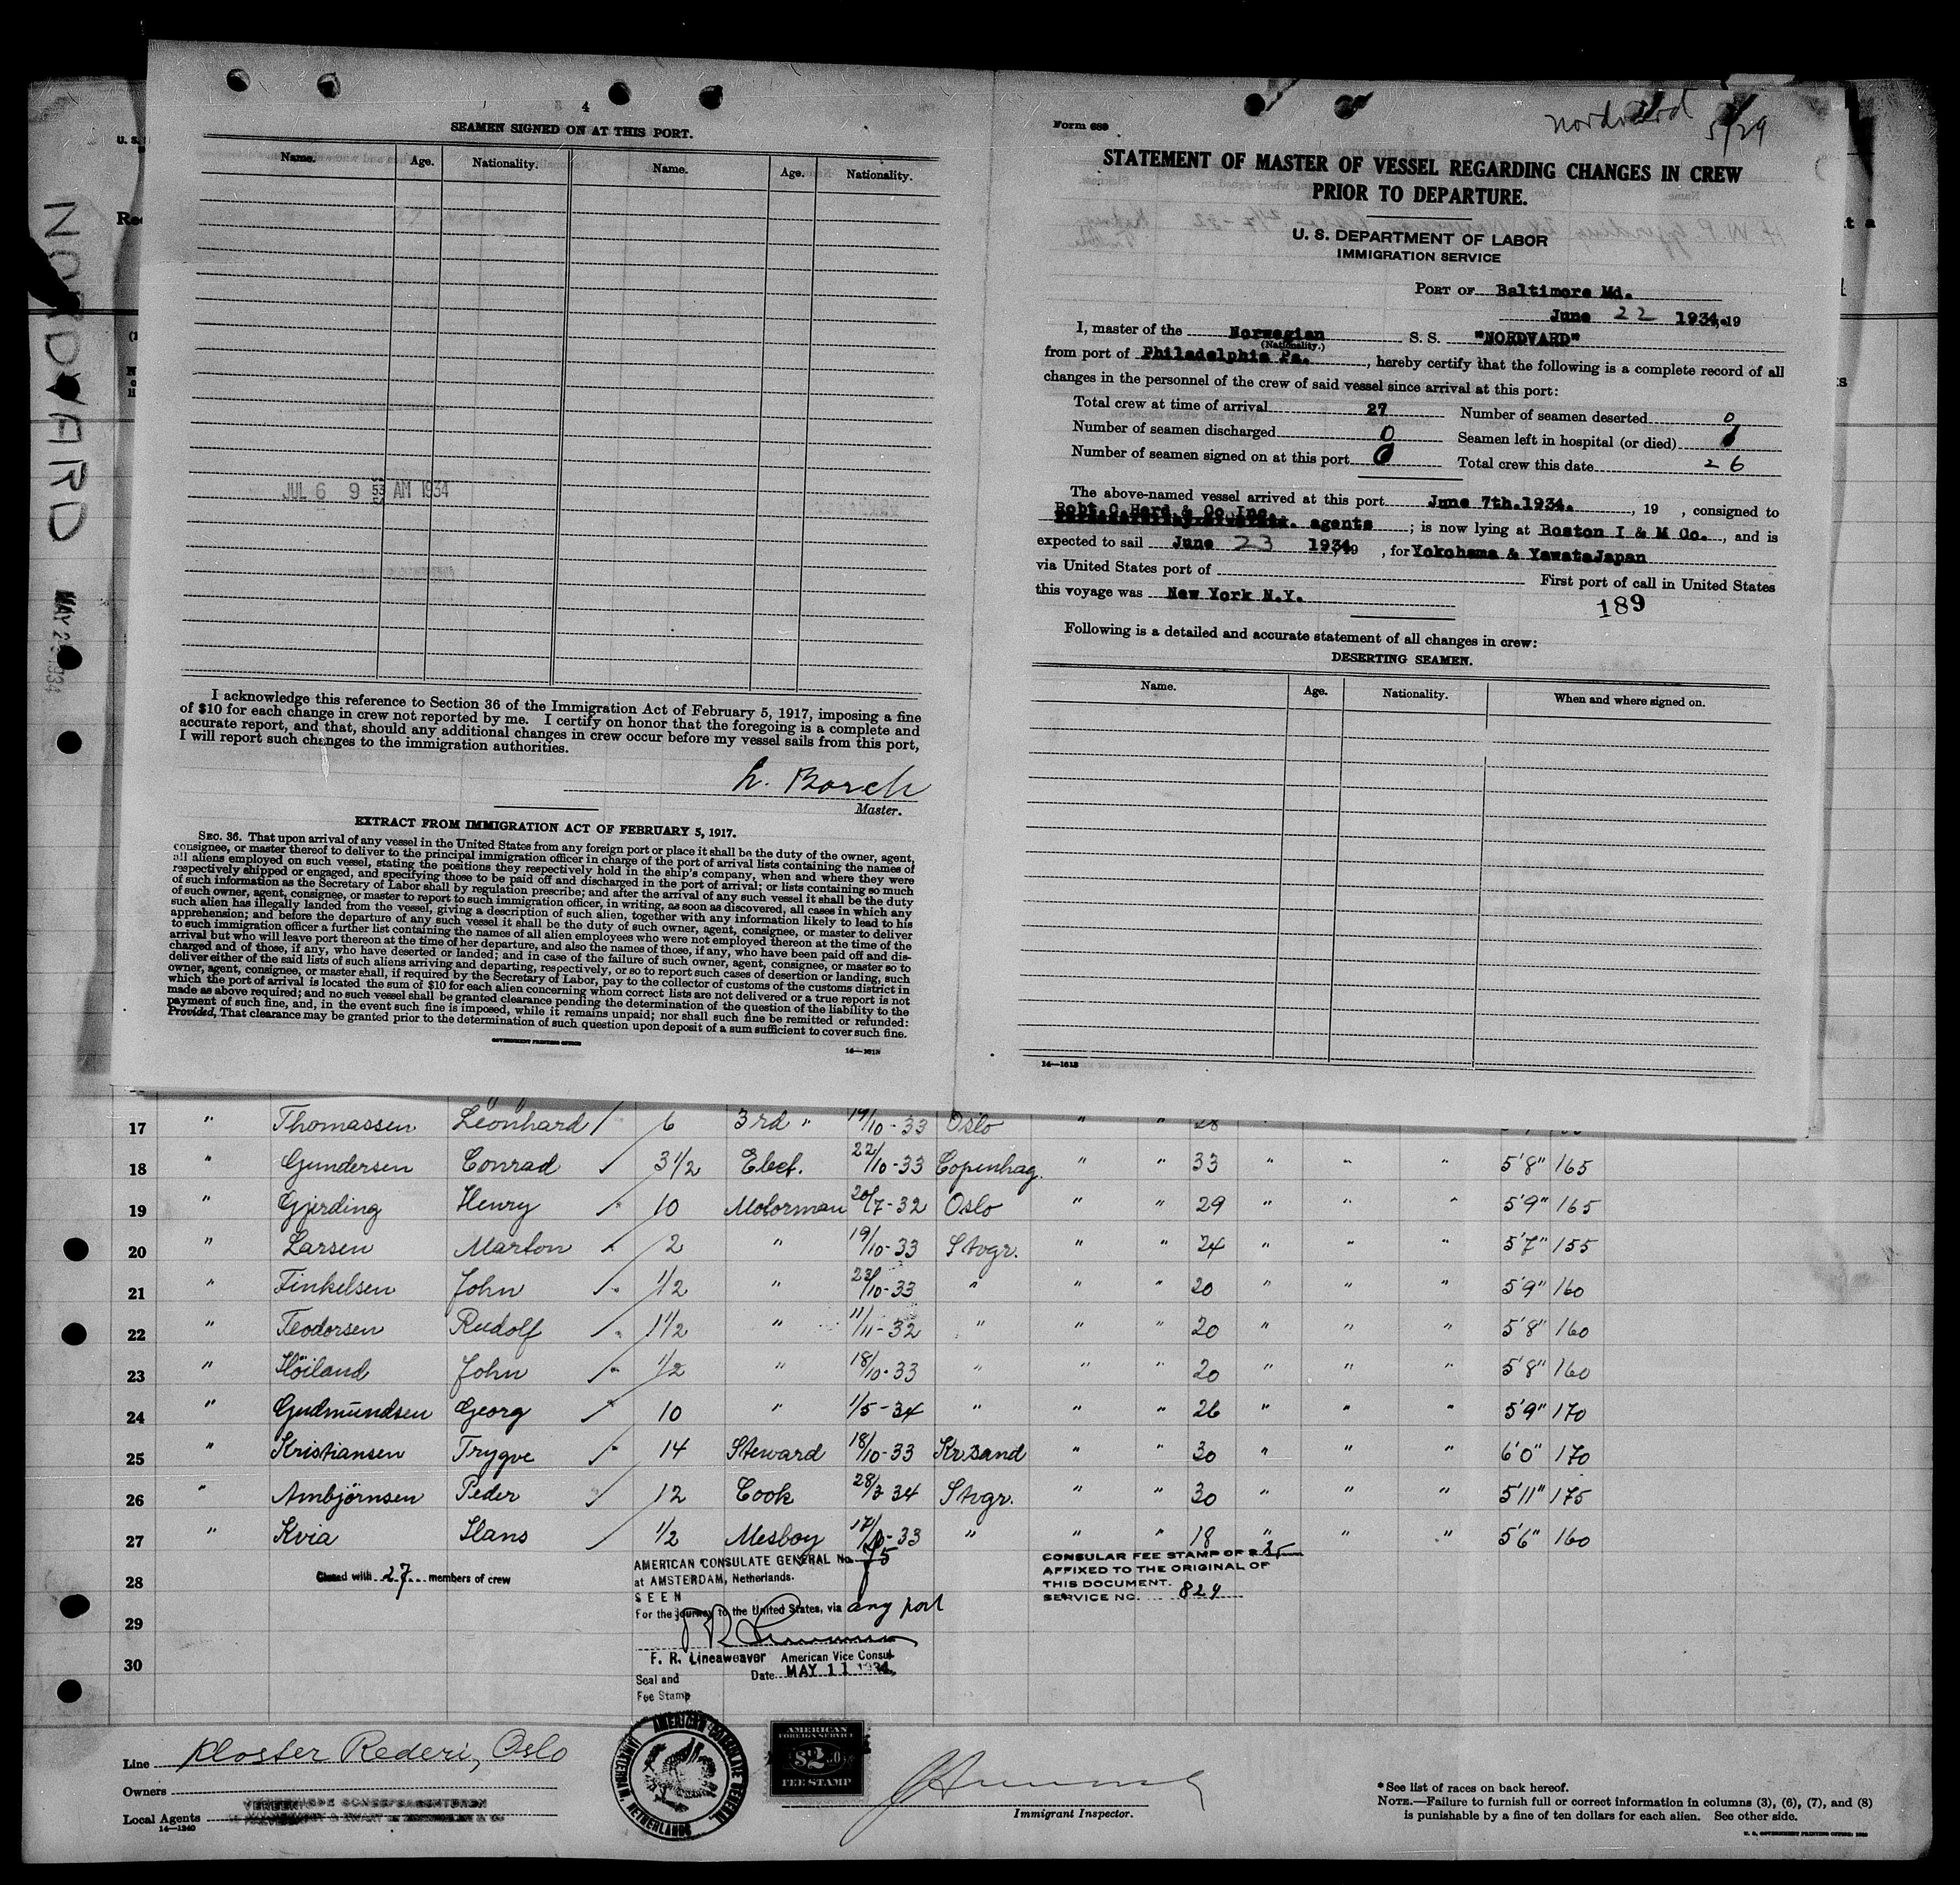 4
SEAMEN SIGNED ON AT THIS PORT.
Name. Age. Nationality. Name. Age. Nationality.
JUL 6 9 AM 1934
I acknowledge this reference to Section 36 of the Immigration Act of February 5, 1917, imposing a fine
of $10 for each change in crew not reported by me. I certify on honor that the foregoing is a complete and
accurate report, and that, should any additional changes in crew occur before my vessel sails from this port,
I will report such changes to the immigration authorities.
h. Borch
Master.
EXTRACT FROM IMMIGRATION ACT OF FEBRUARY 5, 1917.
SEC. 36. That upon arrival of any vessel in the United States from any foreign port or place it shall be the duty of the owner, agent,
consignee, or master thereof to deliver to the principal immigration officer in charge of the port of arrival lists containing the names of
all aliens employed on such vessel, stating the positions they respectively hold in the ship's company, when and where they were
respectively shipped or engaged, and specifying those to be paid off and discharged in the port of arrival; or lists containing so much
of such information as the Secretary of Labor shall by regulation prescribe; and after the arrival of any such vessel it shall be the duty
of such owner, agent, consignee, or master to report to such immigration officer, in writing, as soon as discovered, all cases in which any
such alien has illegally landed from the vessel, giving a description of such alien, together with any information likely to lead to his
apprehension; and before the departure of any such vessel it shall be the duty of such owner, agent, consignee, or master to deliver
to such immigration officer a further list containing the names of all alien employees who were not employed thereon at the time of the
arrival but who will leave port thereon at the time of her departure, and also the names of those, if any, who have been paid off and dis-
charged and of those, if any, who have deserted or landed; and in case of the failure of such owner, agent, consignee, or master so to
deliver either of the said lists of such aliens arriving and departing, respectively, or so to report such cases of desertion or landing, such
owner, agent, consignee, or master shall, if required by the Secretary of Labor, pay to the collector of customs of the customs district in
which the port of arrival is located the sum of $10 for each alien concerning whom correct lists are not delivered or a true report is not
made as above required; and no such vessel shall be granted clearance pending the determination of the question of the liability to the
payment of such fine, and, in the event such fine is imposed, while it remains unpaid; nor shall such fine be remitted or refunded:
Provided, That clearance may be granted prior to the determination of such question upon deposit of a sum sufficient to cover such fine.
GOVERNMENT PRINTING OFFICE
14—1618
Form 689
Nordvard 5/29
STATEMENT OF MASTER OF VESSEL REGARDING CHANGES IN CREW
PRIOR TO DEPARTURE.
U. S. DEPARTMENT OF LABOR
IMMIGRATION SERVICE
PORT OF Baltimore Md.
June 22 1934, 19
I, master of the Norwegian S. S. "NORDVARD"
(Nationality.)
from port of Philadelphia Pa., hereby certify that the following is a complete record of all
changes in the personnel of the crew of said vessel since arrival at this port:
Total crew at time of arrival 27 Number of seamen deserted 0
Number of seamen discharged 0 Seamen left in hospital (or died) 1
Number of seamen signed on at this port 0 Total crew this date 26
The above-named vessel arrived at this port June 7th.1934. , 19 , consigned to
Robt.C.Herd & Co Inc.
agents ; is now lying at Boston I & M Co. , and is
expected to sail June 23 1934 , for Yokohama & YawataJapan
via United States port of First port of call in United States
this voyage was New York N.Y.
189
Following is a detailed and accurate statement of all changes in crew:
DESERTING SEAMEN.
Name. Age. Nationality. When and where signed on.
14—1618
NORDVARD
MAY 1934
17 " Thomassen Leonhard 6 3rd " 19/10-33 Oslo " " 28
18 " Gundersen Conrad 3 1/2 Elect. 22/10-33 Copenhag. " " 33 " " " 5'8" 165
19 " Gjerding Henry 10 Motorman 20/7-32 Oslo " " 29 " " " 5'9" 165
20 " Larsen Marton 2 " 19/10-33 Stvgr. " " 24 " " " 5'7" 155
21 " Finkelsen John 1/2 " 23/10-33 " " " 20 " " " 5'9" 160
22 " Teodorsen Rudolf 1 1/2 " 11/11-32 " " " 20 " " " 5'8" 160
23 " Höiland John 1/2 " 18/10-33 " " " 20 " " " 5'8" 160
24 " Gudmundsen Georg 10 " 1/5-34 " " " 26 " " " 5'9" 170
25 " Kristiansen Trygve 14 Steward 18/10-33 Kr.sand " " 30 " " " 6'0" 170
26 " Ambjörnsen Peder 12 Cook 28/3 34 Stvgr. " " 30 " " " 5'11" 175
27 " Kvia Hans 1/2 Mesboy 17/10-33 " " " 18 " " " 5'6" 160
28
29
30
Closed with 27 members of crew
AMERICAN CONSULATE GENERAL No. 75
at AMSTERDAM, Netherlands.
SEEN
For the journey to the United States, via any port
F. R. Lineaweaver American Vice Consul
Date MAY 11 1934
Seal and
Fee Stamp
CONSULAR FEE STAMP OF $
AFFIXED TO THE ORIGINAL OF
THIS DOCUMENT.
SERVICE NO. 824
Line Kloster Rederi, Oslo
Owners
Local Agents
14—1240
AMERICAN CONSULATE GENERAL
AMSTERDAM, NETHERLANDS
AMERICAN
FOREIGN SERVICE
$2.00
FEE STAMP
Immigrant Inspector.
*See list of races on back hereof.
NOTE.—Failure to furnish full or correct information in columns (3), (6), (7), and (8)
is punishable by a fine of ten dollars for each alien. See other side.